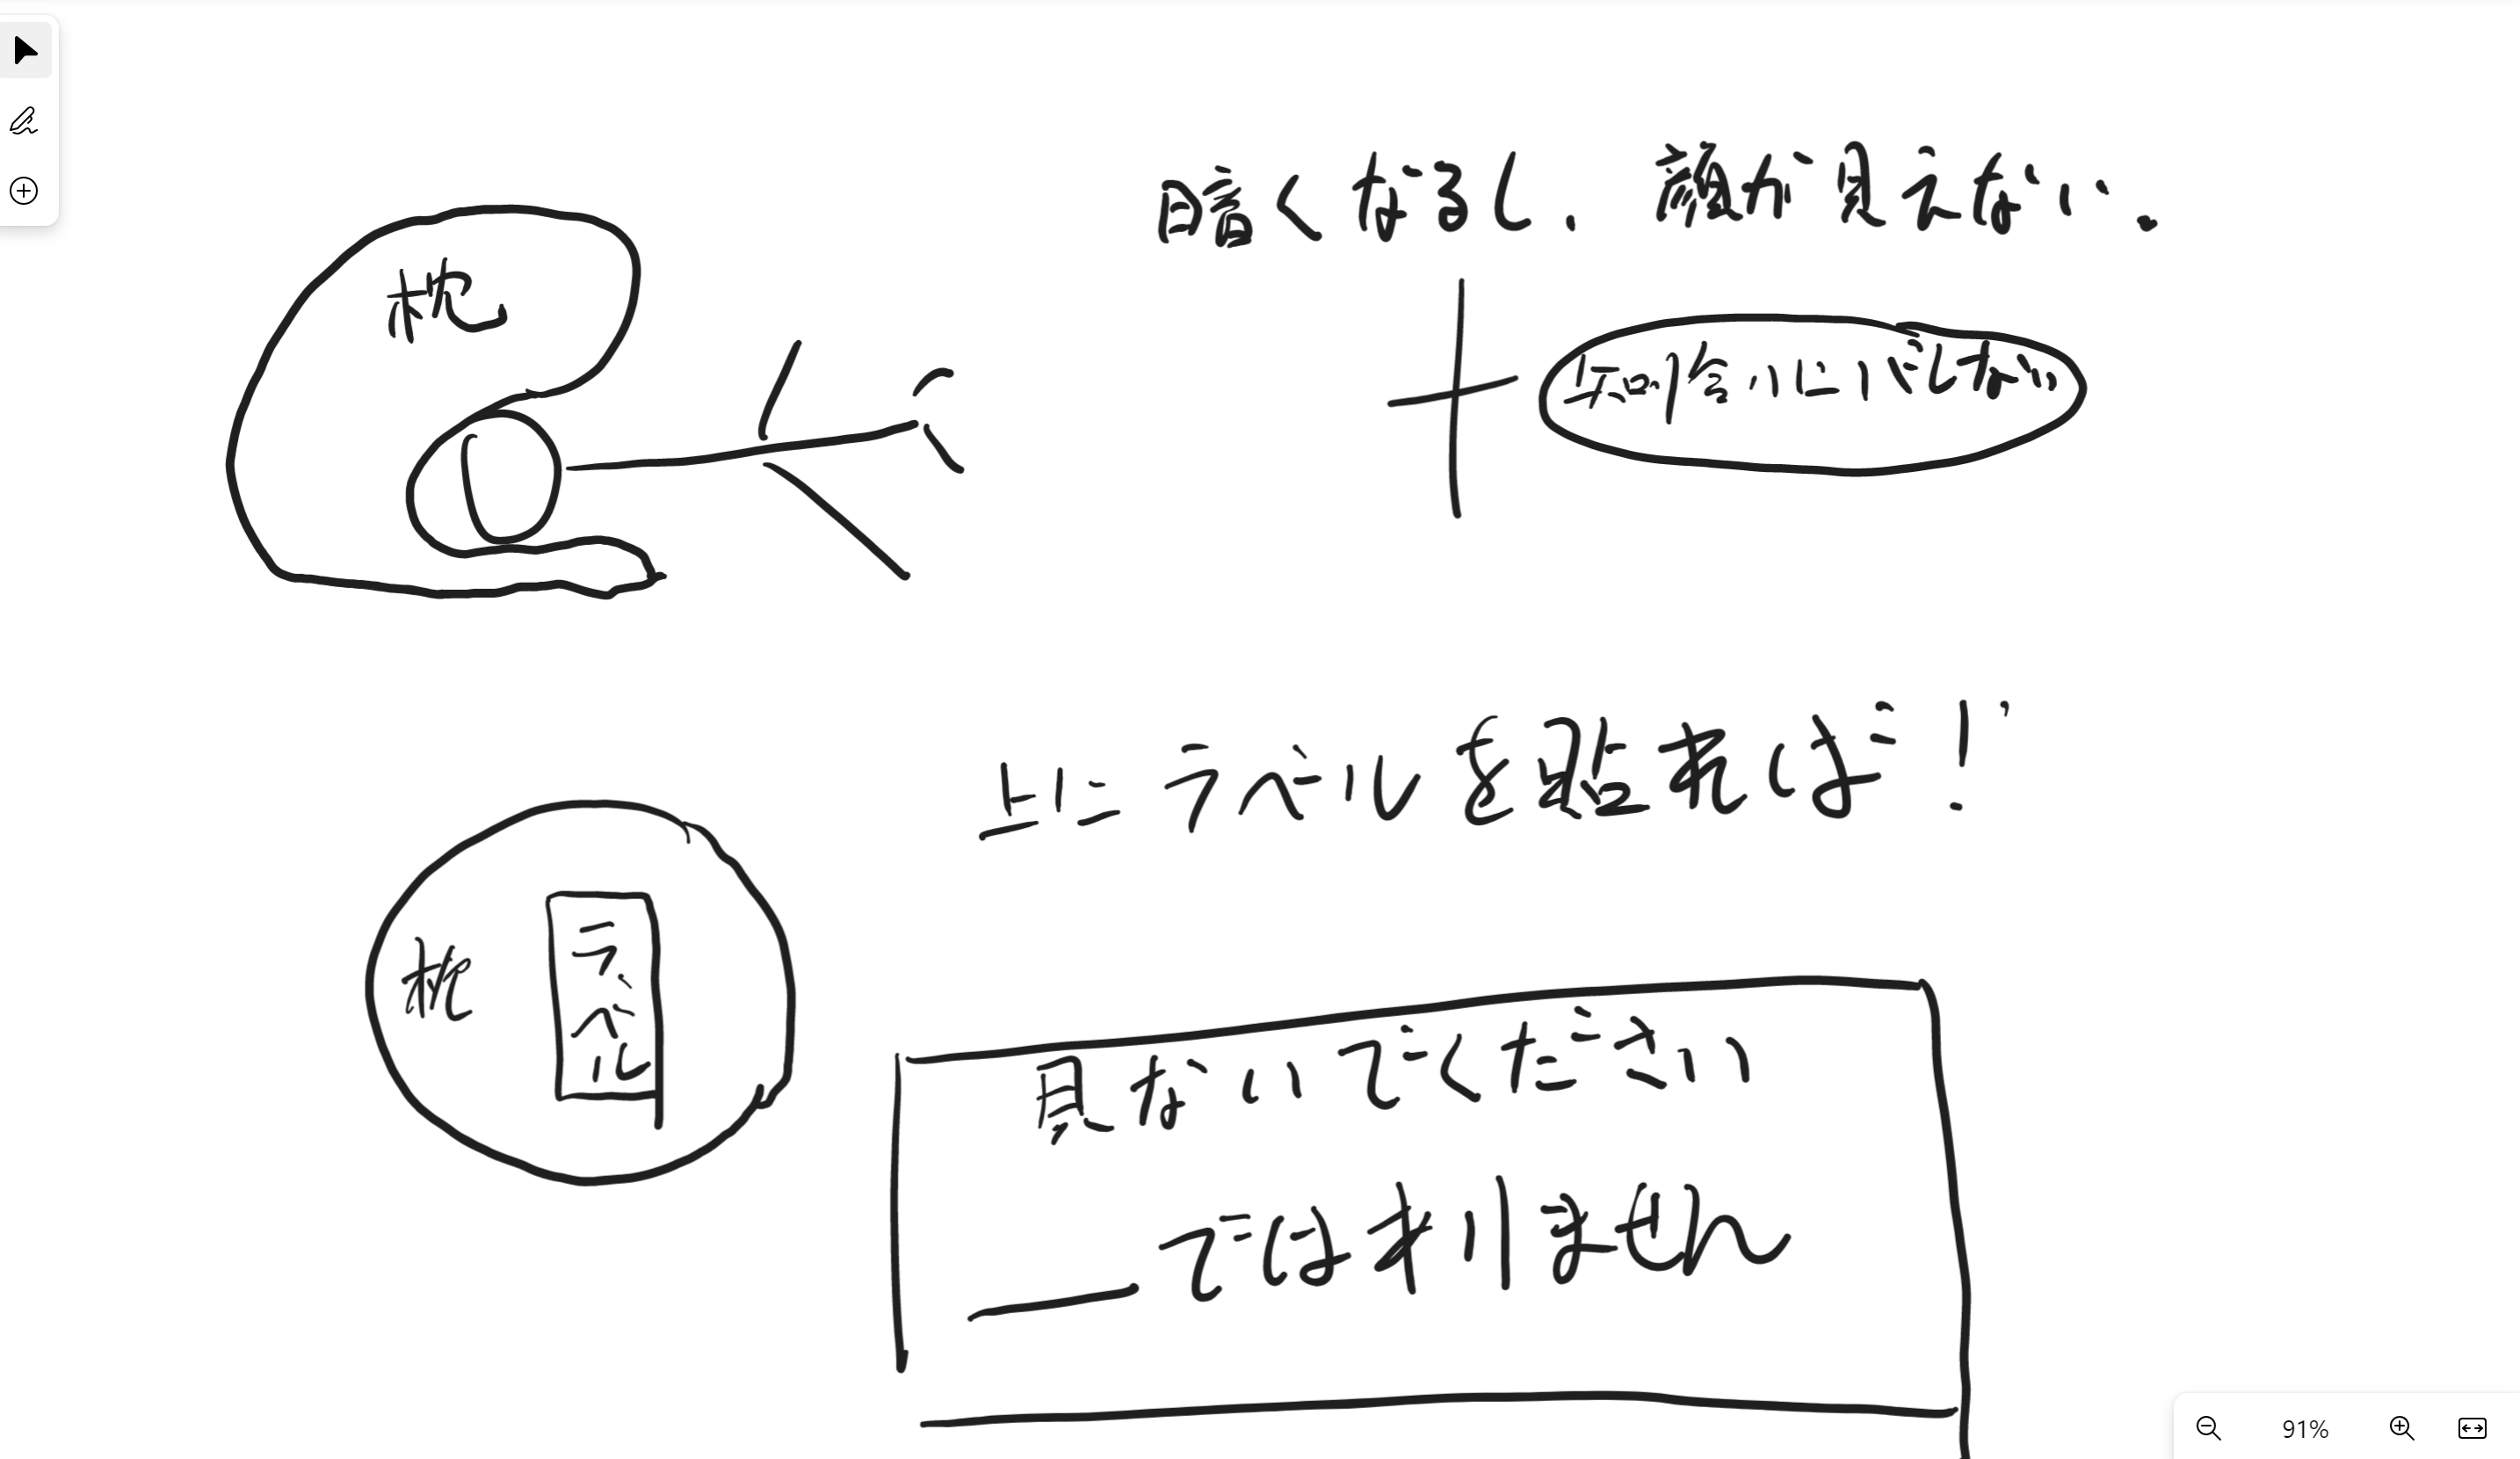 暗くなるし、顔が見えない。
枕
知り合いにバレない
上にラベルを貼れば!
枕
ラベル
見ないでください
__ではありません
91%